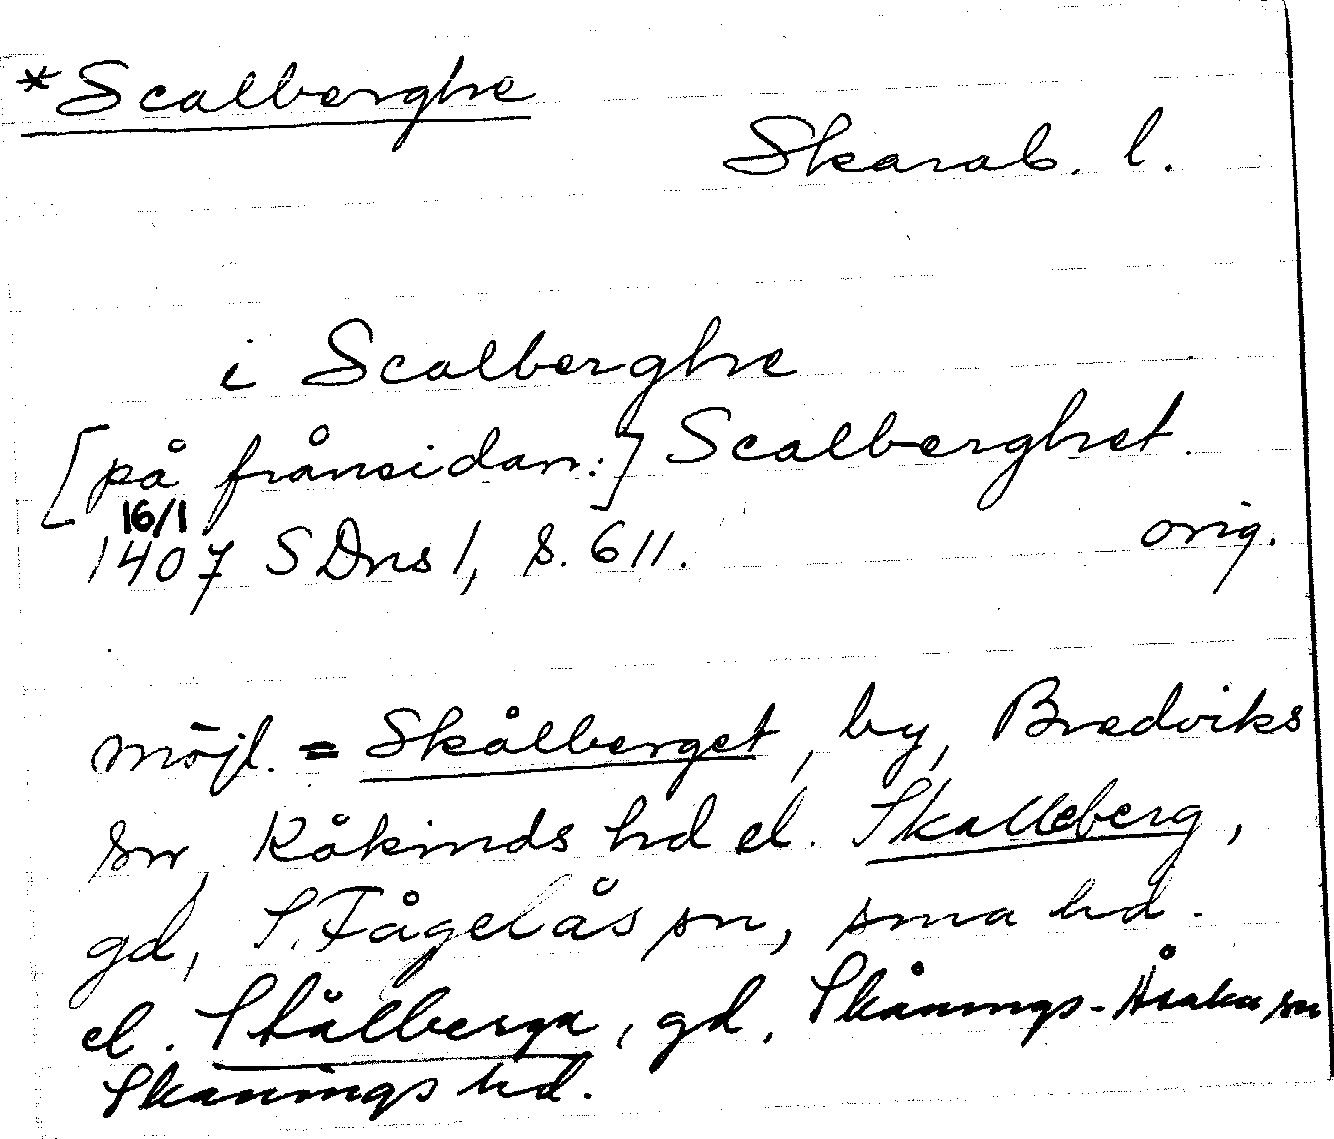 *Scalberghe
Skarab. l.
i Scalberghe
[på frånsidan:] Scalberghet.
16/1
1407 SDns 1, s. 611. orig.
möjl. = Skålberget, by, Bredviks
sn, Kåkinds hd el. Skalleberg,
gd, S. Fågelås sn, sma hd.
el. Skålberga, gd, Skånings-Åsaka sn
Skånings hd.